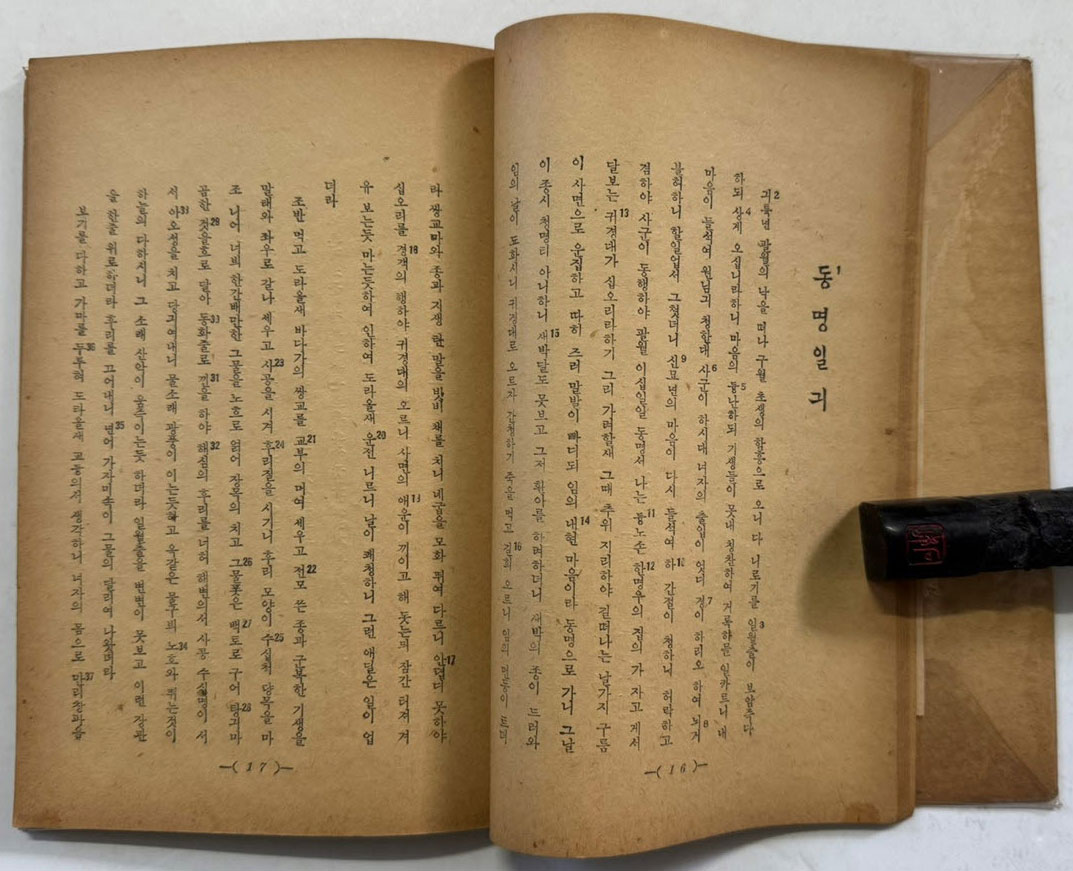 동1명일긔
긔2튝년 팔월의 낙을 떠나 구월 초생의 함흥으로 오니 다 니르기를 일3월출이 보암즉다
하되 상4게 오십니라하니 마음의 듕5난하되 기생들이 못내 칭찬하여 거록하믈 일카르니 내
마음이 들석여 원님긔 청한대 사6군이 하시대 녀자의 출입이 엇디 경7이 하리오 하여 뇌8거
블허하니 할일업서 그첫더니 신9묘년의 마음이 다시 들석여 하 간10절이 청하니 허락하고
겸하야 사군이 동행하야 팔월 이십일일 동명셔 나는 듕노손 한11명우의 집의 가 자고 게서
달보는 귀13경대가 십오리라하기 그리 가려할새 그때 추위 지리하야 길떠나는 날가지 구름
이 사면으로 운집하고 따히 즈러 말발이 빠디되 임의 내14현 마음이라 동명으로 가니 그날
이 종시 청명티 아니하니 새15박달도 못브고 그저 환아를 하며하더니 새박의 종이 드러와
임의 날이 됴화시니 귀경대로 오르자 간청하기 죽을 먹고 길16희 오르니 임의 먼동이 트더
—( 16 )—
라 쌍교마와 종과 기생 탄 말을 밧비 채를 치니 네굽을 모화 뛰여 다르니 안17뎝디 못하야
십오리를 경18각의 행하야 귀경대의 오르니 사면의 애19운이 끼이고 해 돗는듸 잠간 터져 겨
유 보는듯 마는듯하여 인하여 도라올새 운20전 니르니 날이 쾌청하니 그런 애돌은 일이 업
더라
조반 먹고 도라올새 바다가의 쌍교를 교21부의 머여 세우고 전모22 쓴 종과 군복한 기생을
말태와 좌우로 갈나 세우고 사23공을 시겨 후24리질을 시기니 후리 모양이 수25십척 당목을 마
조 니어 너븨 한간배만한 그물을 노흐로 얽어 장목의 치고 그26물폿은 백27토로 구어 탕28긔마
곰한 것29을흐로 달아 동30화줄로 긴31을 하야 해심의 후32리를 너허 해변의서 사공 수십명이 서
서 아33오성을 치고 당긔여내니 물소래 광풍이 이는듯하고 옥갈은 물구븨 노34호와 뛰는것이
하늘의 다하시니 그 소래 산악이 움죽이는듯 하더라 일월출을 변변이 못보고 이런 장관
을 한줄 위로하더라 후리를 끄어내니 년35어 가자미속이 그물의 달리여 나왓더라
보기를 다하고 가마를 두루36혀 도라올새 교듕의서 생각하니 녀자의 몸으로 만37리창파를
—( 17 )—